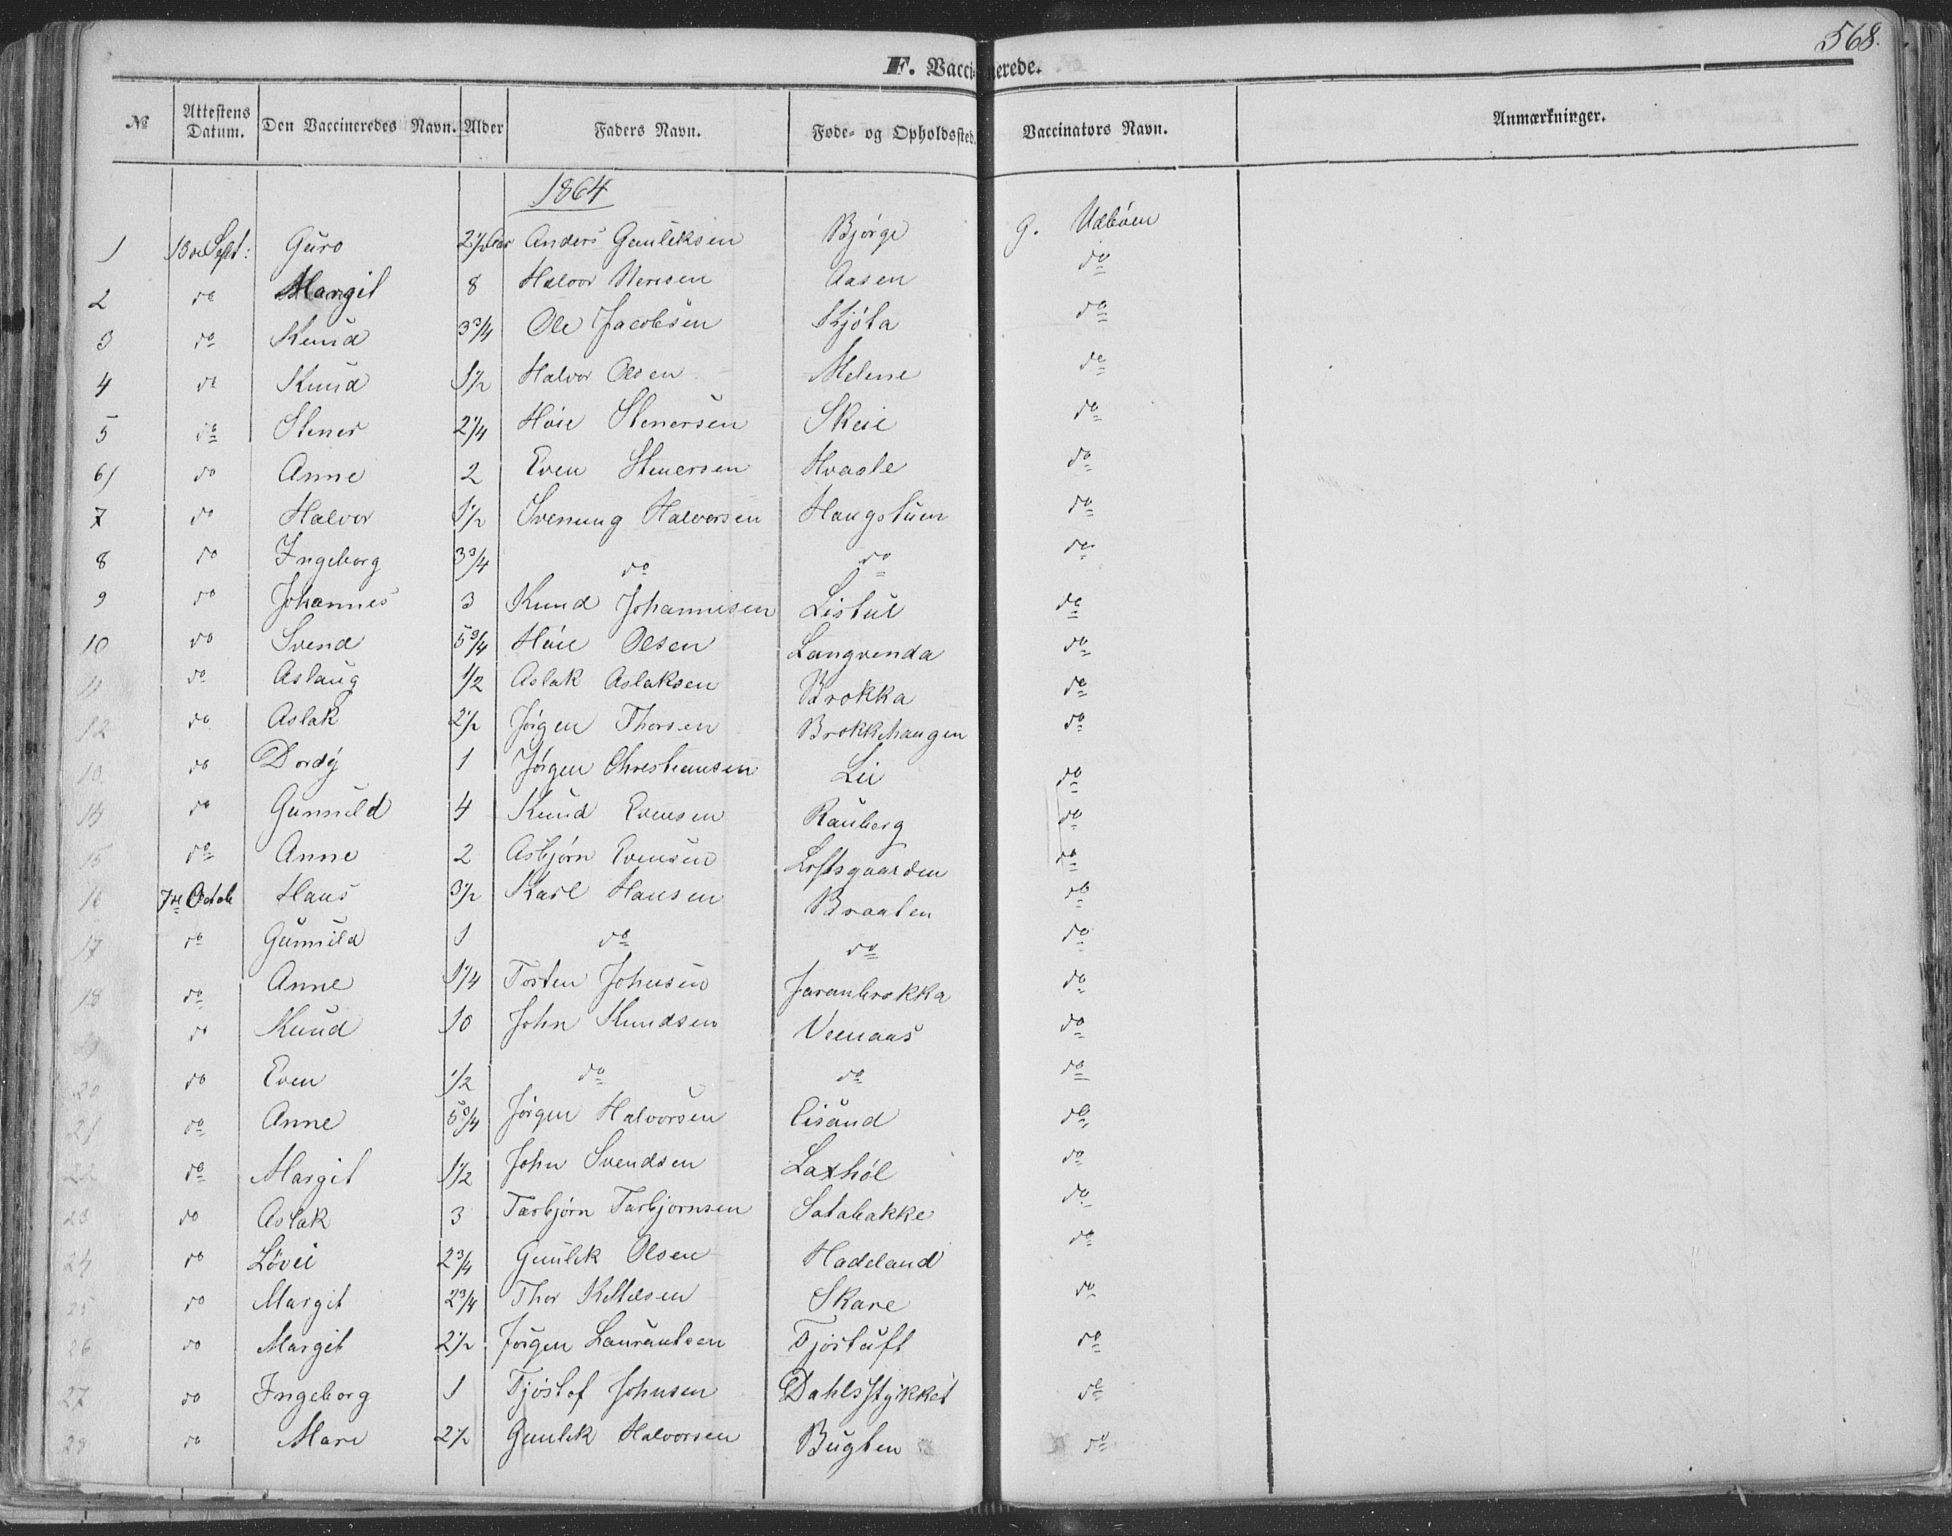 568.
F. Vaccinerede.
№ | Attestens Datum. | Den Vaccineredes Navn. | Alder | Faders Navn. | Føde- og Opholdssted. | Vaccinators Navn. | Anmærkninger.
1864
1 | 13de Sept: | Guro | 2½ Aar | Anders Gunleksen | Bjørge | G. Udbøen
2 | do | Margit | 8 | Halvor | Aasen | do
3 | do | Knud | 3¾ | Ole Jacobsen | | do
4 | do | Knud | 1½ | Halvor Olsen | Melene | do
5 | do | Stener | 2¼ | Høie Stenersen | Skeie | do
6 | do | Anne | 2 | Even Stenersen | Hvaale | do
7 | do | Halvor | 1½ | Svenung Halvorsen | Haugstuen | do
8 | do | Ingeborg | 3¾ | do | do | do
9 | do | Johannes | 3 | Knud Johannisen | Listul | do
10 | do | Svend | 5¾ | Høie Olsen | Langvenda | do
11 | do | Aslaug | ½ | Aslak Aslaksen | Brokka | do
12 | do | Aslak | 2½ | Jørgen Thorsen | Brokkehaugen | do
13 | do | Dordÿ | 1 | Jørgen Christiansen | Lii | do
14 | do | Gunnild | 4 | Knud Evensen | Rauberg | do
15 | do | Anne | 2 | Asbjørn Evensen | Loftsgaarden | do
16 | 7de Octob | Hans | 3½ | Karl Hansen | Braaten | do
17 | do | Gunnild | 1 | do | do | do
18 | do | Anne | 1¼ | Torsten Johnsen | Jaranbrokka | do
19 | do | Knud | 10 | John Knudsen | Veenaas | do
20 | do | Even | ½ | do | do | do
21 | do | Anne | 5¾ | Jørgen Halvorsen | Eisand | do
22 | do | Margit | 1½ | John Svendsen | Laxhøl | do
23 | do | Aslak | 3 | Tarbjørn Tarbjornsen | Satabakke | do
24 | do | Løvii | 2¾ | Gunlek Olsen | Hadeland | do
25 | do | Margit | 2¾ | Thor Kittelsen | Skare | do
26 | do | Margit | 2½ | Jørgen Laurantsen | Tjøstuft | do
27 | do | Ingeborg | 1 | Tjøstof Johnsen | Dahlsstykket | do
28 | do | Mari | 2½ | Gunlek Halvorsen | Bugten | do